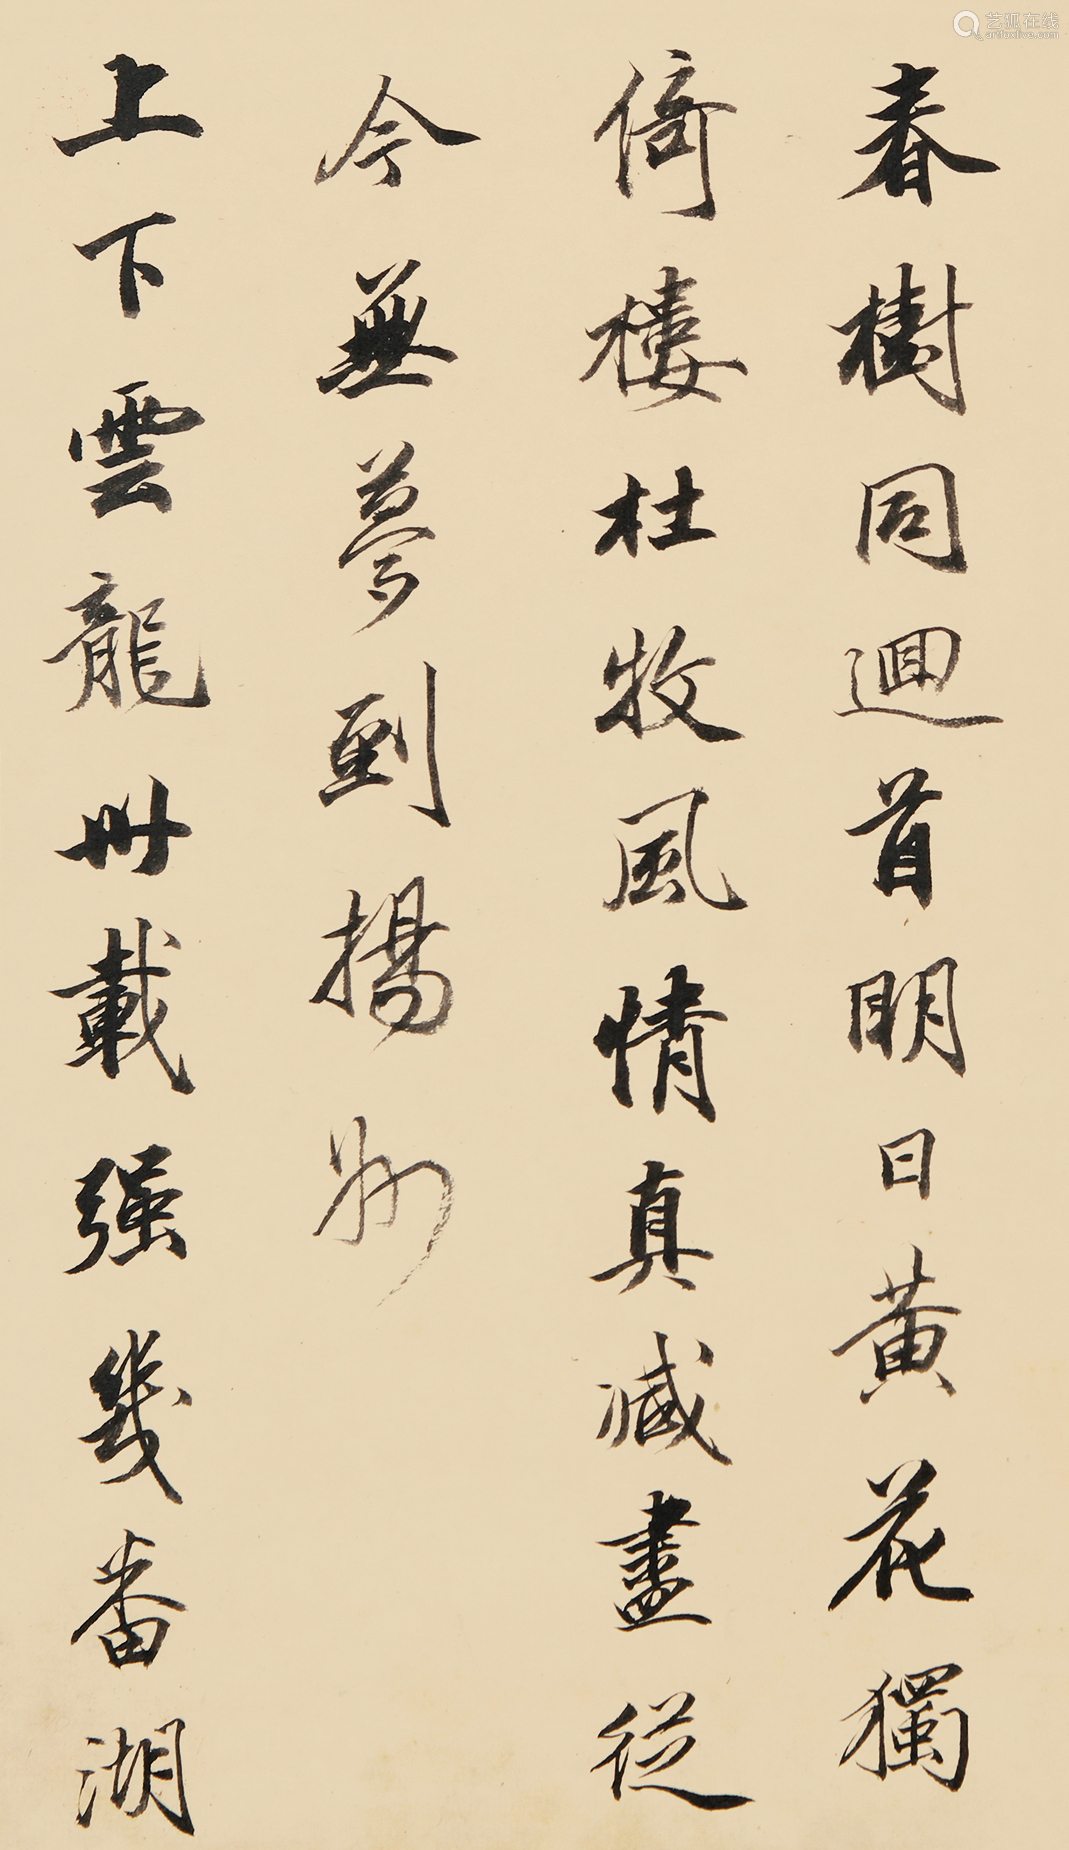 春樹同迴首明日黃花獨
倚樓杜牧風情真減盡從
今無夢到揚州
上下雲龍卅載強幾番湖
艺狐在线
artfoxlive.com